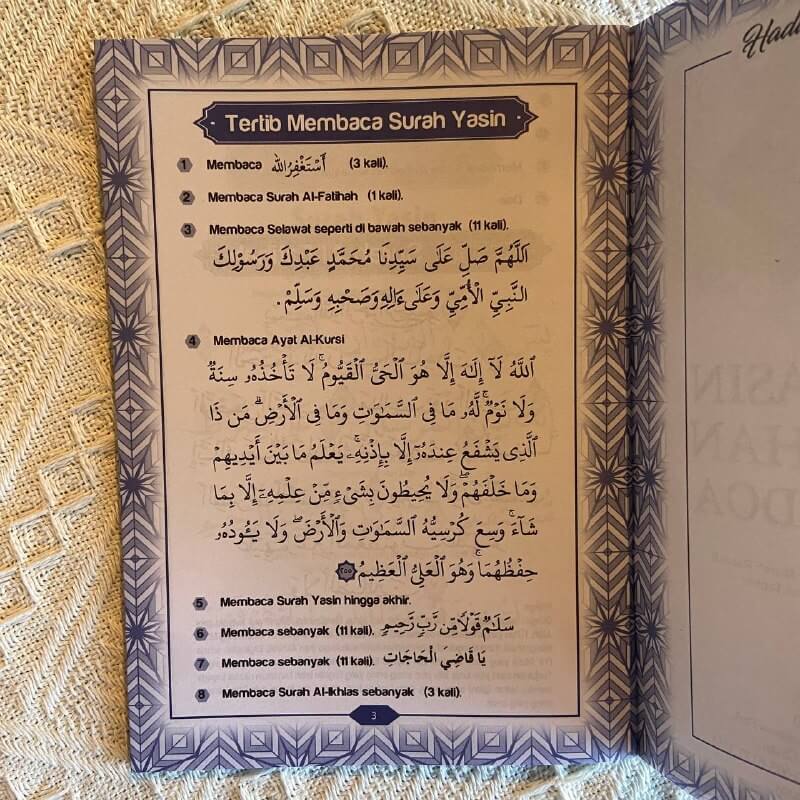 Tertib Membaca Surah Yasin
1 Membaca أَسْتَغْفِرُالله (3 kali).
2 Membaca Surah Al-Fatihah (1 kali).
3 Membaca Selawat seperti di bawah sebanyak (11 kali).
اَللَّهُمَّ صَلِّ عَلَى سَيِّدِنَا مُحَمَّدٍ عَبْدِكَ وَرَسُوْلِكَ
النَّبِيِّ الْأُمِّيِّ وَعَلَى ءَالِهِ وَصَحْبِهِ وَسَلِّمْ.
4 Membaca Ayat Al-Kursi
ٱللَّهُ لَآ إِلَٰهَ إِلَّا هُوَ ٱلْحَىُّ ٱلْقَيُّومُ ۚ لَا تَأْخُذُهُۥ سِنَةٌ
وَلَا نَوْمٌ ۚ لَّهُۥ مَا فِى ٱلسَّمَٰوَٰتِ وَمَا فِى ٱلْأَرْضِ ۗ مَن ذَا
ٱلَّذِى يَشْفَعُ عِندَهُۥٓ إِلَّا بِإِذْنِهِۦ ۚ يَعْلَمُ مَا بَيْنَ أَيْدِيهِمْ
وَمَا خَلْفَهُمْ ۖ وَلَا يُحِيطُونَ بِشَىْءٍ مِّنْ عِلْمِهِۦٓ إِلَّا بِمَا
شَآءَ ۚ وَسِعَ كُرْسِيُّهُ ٱلسَّمَٰوَٰتِ وَٱلْأَرْضَ ۖ وَلَا يَـُٔودُهُۥ
حِفْظُهُمَا ۚ وَهُوَ ٱلْعَلِىُّ ٱلْعَظِيمُ ٢٥٥
5 Membaca Surah Yasin hingga akhir.
6 Membaca sebanyak (11 kali). سَلَٰمٌ قَوْلًا مِّن رَّبٍّ رَّحِيمٍ
7 Membaca sebanyak (11 kali). يَا قَاضِيَ الْحَاجَاتِ
8 Membaca Surah Al-Ikhlas sebanyak (3 kali).
3